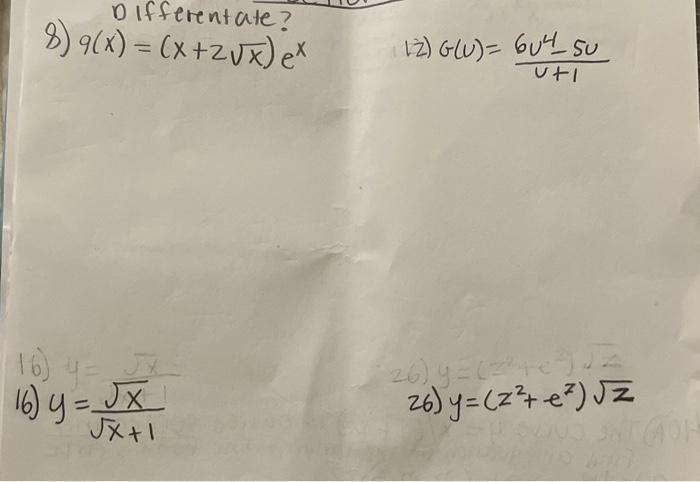 Differentate?
8) g(x) = (x+2√x) eˣ
12) G(u) = 6u⁴-5u / u+1
16) y = √x / √x+1
26) y=(z²+eᶻ)√z